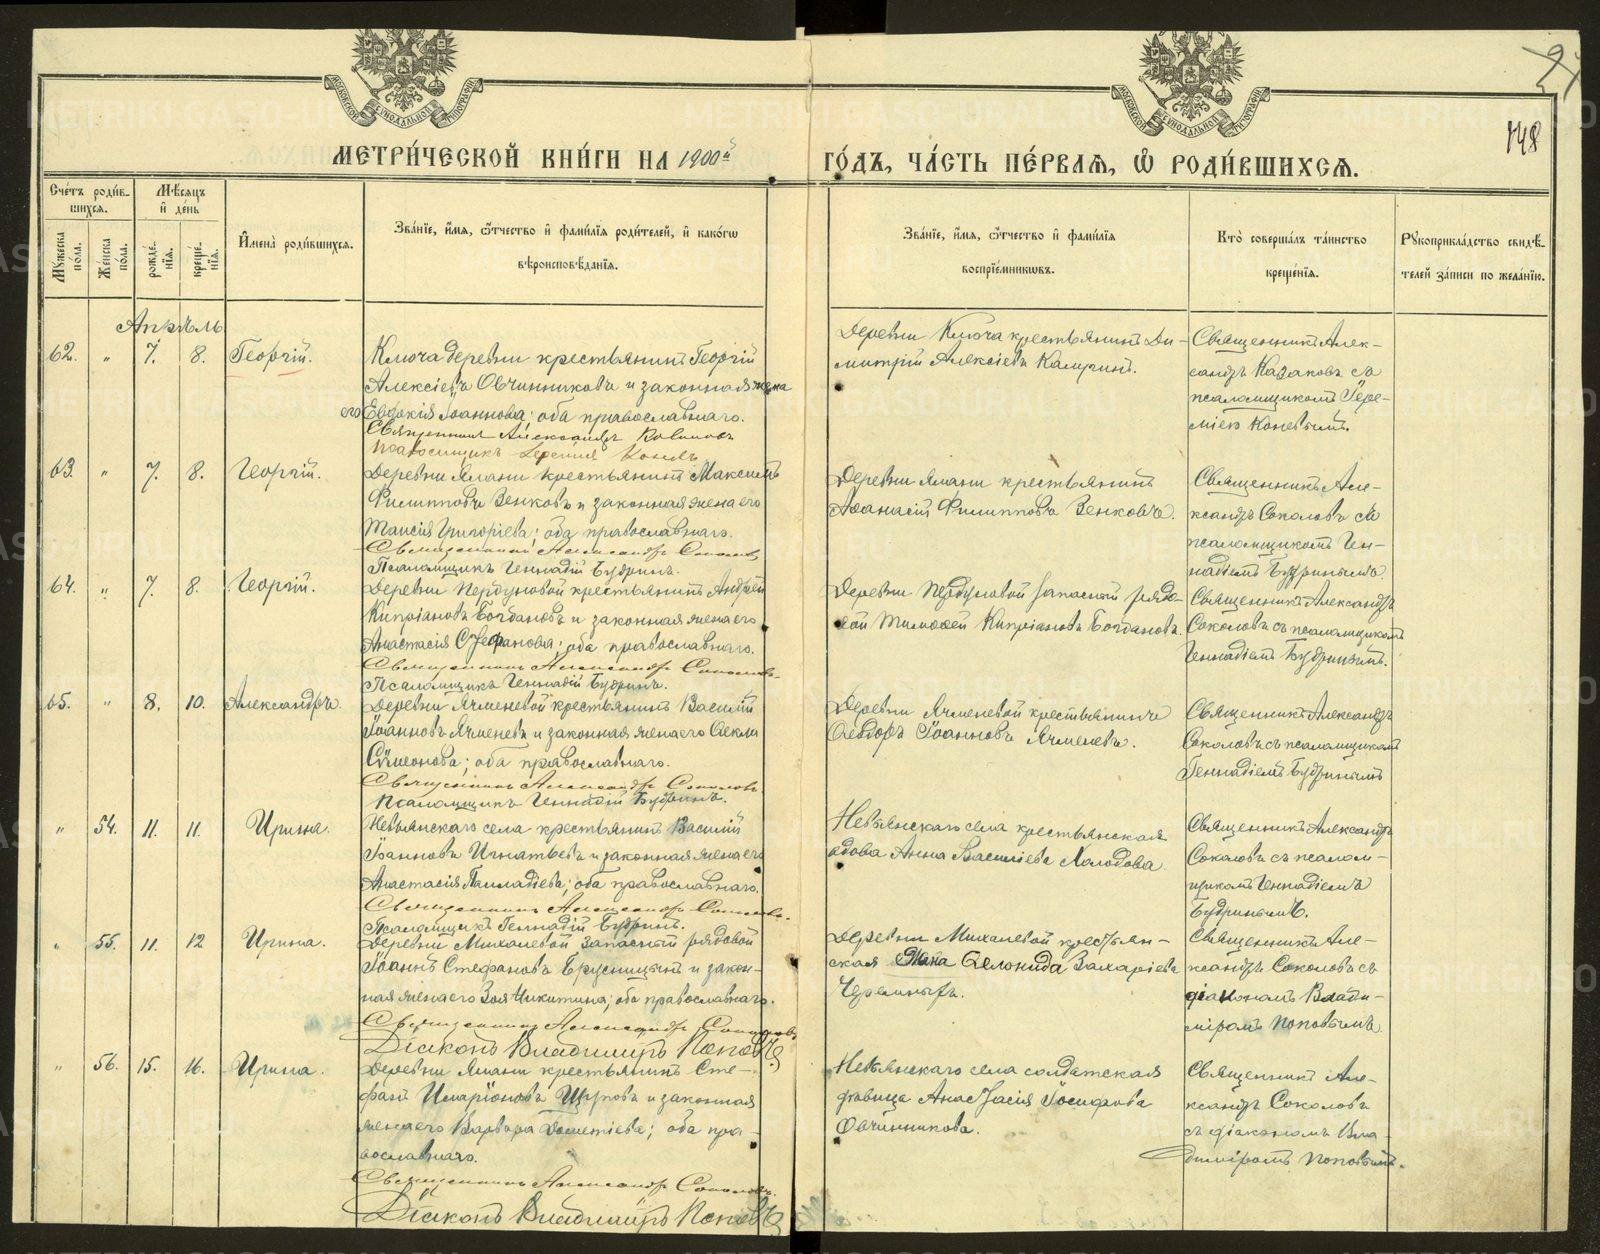 27
148
МЕТРИ́ЧЕСКОЙ КНИ́ГИ НА 1900й ГО́ДЪ, ЧА́СТЬ ПЕ́РВАѦ, Ѡ҆ РОДИ́ВШИХСѦ.
Сче́тъ роди́в-
шихся.
Мѣ́сяцъ
и҆ де́нь
Мꙋ́жеска по́ла.
Же́нска по́ла.
рожде́-
нїѧ.
креще́-
нїѧ.
И҆мена̀ роди́вшихся.
Зва́нїе, и҆́мѧ, ѻ҆́тчество и҆ фами́лїѧ роди́телей, и҆ како́гѡ
вѣроисповѣ́данїѧ.
Зва́нїе, и҆́мѧ, ѻ҆́тчество и҆ фами́лїѧ
воспрїе́мникѡвъ.
Кто̀ соверша́лъ та́инство
креще́нїѧ.
Рꙋкоприкла́дство свидѣ́-
телей за́писи по жела́нїю.
Апрѣль
62. " 7. 8. Георгій.
Ключа деревни крестьянинъ Георгій
Алексіевъ Овчинниковъ и законная жена
его Евдокія Іоаннова; оба православнаго.
Священникъ Александръ
Псаломщикъ Іеремія Коневъ
Деревни Ключа крестьянинъ Ди-
митрій Алексіевъ
Священникъ Алек-
сандръ Казаковъ съ
псаломщикомъ Іере-
міею Коневымъ.
63. " 7. 8. Георгій.
Деревни Ямани крестьянинъ Максимъ
Филипповъ Зенковъ и законная жена его
Таисія Григоріева; оба православнаго.
Священникъ Александръ Соколовъ
Псаломщикъ Геннадій Будринъ.
Деревни Ямани крестьянинъ
Аѳанасій Филипповъ Зенковъ.
Священникъ Але-
ксандръ Соколовъ съ
псаломщикомъ Ген-
надіемъ Будринымъ.
64. " 7. 8. Георгій.
Деревни Пердуновой крестьянинъ Андрей
Кипріановъ Богдановъ и законная жена его
Анастасія Стефанова; оба православнаго.
Священникъ Александръ Соколовъ.
Псаломщикъ Геннадій Будринъ.
Деревни Пердуновой запасный рядо-
вой Тимоѳей Кипріановъ Богдановъ.
Священникъ Александръ
Соколовъ съ псаломщикомъ
Геннадіемъ Будринымъ.
65. " 8. 10. Александръ.
Деревни Ячменевой крестьянинъ Василій
Іоанновъ Ячменевъ и законная жена его Ѳекла
Сѵмеонова; оба православнаго.
Священникъ Александръ Соколовъ
Псаломщикъ Геннадій Будринъ.
Деревни Ячменевой крестьянинъ
Ѳеодоръ Іоанновъ Ячменевъ.
Священникъ Александръ
Соколовъ съ псаломщикомъ
Геннадіемъ Будринымъ
" 54. 11. 11. Ирина.
Невьянскаго села крестьянинъ Василій
Іоанновъ Игнатьевъ и законная жена его
Анастасія Палладіева; оба православнаго.
Священникъ Александръ Соколовъ.
Псаломщикъ Геннадій Будринъ.
Невьянскаго села крестьянская
вдова Анна Василіева Холодова
Священникъ Александръ
Соколовъ съ псалом-
щикомъ Геннадіемъ
Будринымъ.
" 55. 11. 12 Ирина.
Деревни Михалевой запасный рядовой
Іоаннъ Стефановъ Брусницынъ и закон-
ная жена его Зоя Никитина; оба православнаго.
Священникъ Александръ Соколовъ
Діаконъ Владиміръ Поповъ
Деревни Михалевой крестьян-
ская жена Ѳелонида Захаріева
Черемныхъ.
Священникъ Але-
ксандръ Соколовъ съ
діакономъ Влади-
міромъ Поповымъ.
" 56. 15. 16. Ирина.
Деревни Ямани крестьянинъ Сте-
фанъ Иларіоновъ Щуповъ и законная
жена его Варвара Дометіева; оба пра-
вославнаго.
Священникъ Александръ Соколовъ.
Діаконъ Владиміръ Поповъ
Невьянскаго села солдатская
дѣвица Анастасія Іосифова
Овчинникова.
Священникъ Але-
ксандръ Соколовъ
съ діакономъ Вла-
диміромъ Поповымъ.